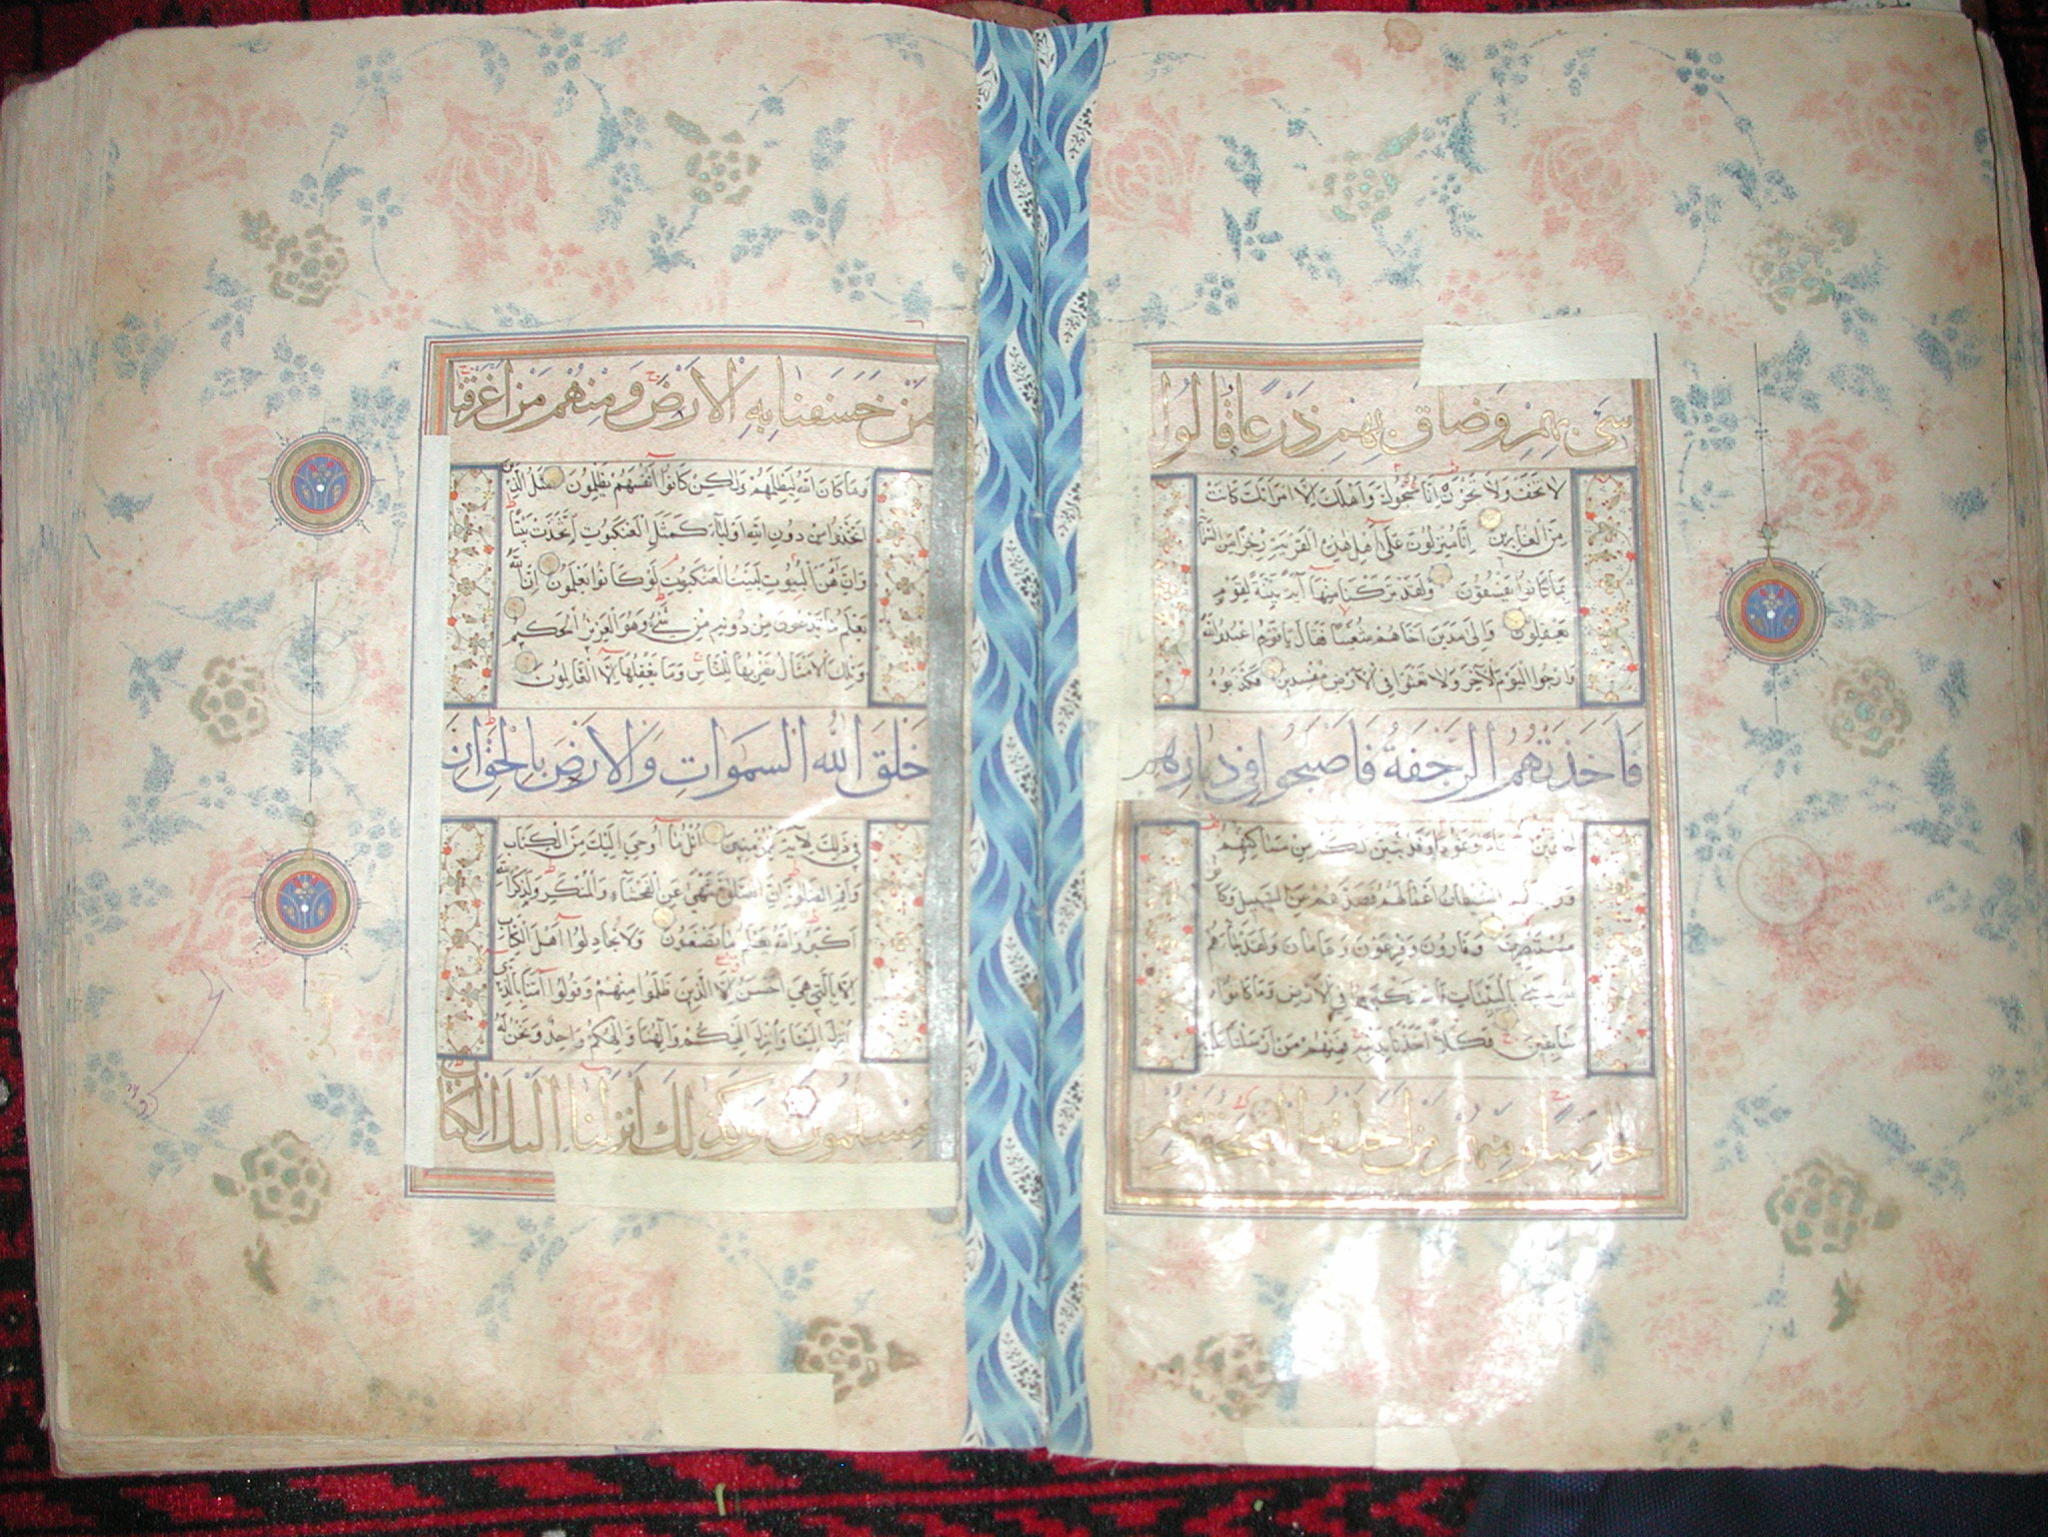 سيء بهم وضاق بهم ذرعا وقالوا
لا تخف ولا تحزن إنا منجوك وأهلك إلا امرأتك كانت
من الغابرين إنا منزلون على أهل هذه القرية رجزا من السما
بما كانوا يفسقون ولقد تركنا منها آية بينة لقوم
يعقلون وإلى مدين أخاهم شعيبا فقال يا قوم اعبدوا الله
وارجوا اليوم الآخر ولا تعثوا في الأرض مفسدين فكذبوه
فأخذتهم الرجفة فأصبحوا في دارهم
جاثمين وعادا وثمود وقد تبين لكم من مساكنهم
وزين لهم الشيطان أعمالهم فصدهم عن السبيل وكا
مستبصرين وقارون وفرعون وهامان ولقد جاءهم
موسى بالبينات فاستكبروا في الأرض وما كانوا
سابقين فكلا أخذنا بذنبه فمنهم من أرسلنا عليه
حاصبا ومنهم من أخذته الصيحة ومنهم
من خسفنا به الأرض ومنهم من أغرقنا
وما كان الله ليظلمهم ولكن كانوا أنفسهم يظلمون مثل الذين
اتخذوا من دون الله أولياء كمثل العنكبوت اتخذت بيتا
وإن أوهن البيوت لبيت العنكبوت لو كانوا يعلمون إن الله
يعلم ما يدعون من دونه من شيء وهو العزيز الحكيم
وتلك الأمثال نضربها للناس وما يعقلها إلا العالمون
خلق الله السموات والأرض بالحق إن
في ذلك لآية للمؤمنين اتل ما أوحي إليك من الكتاب
وأقم الصلوة إن الصلوة تنهى عن الفحشاء والمنكر ولذكر الله
أكبر والله يعلم ما تصنعون ولا تجادلوا أهل الكتاب
إلا بالتي هي أحسن إلا الذين ظلموا منهم وقولوا آمنا بالذي
أنزل إلينا وأنزل إليكم وإلهنا وإلهكم واحد ونحن له
مسلمون وكذلك أنزلنا إليك الكتاب